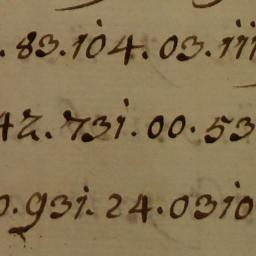 . 83. 104. 03. 111
42. 731. 00. 53
0. 931. 24. 0310